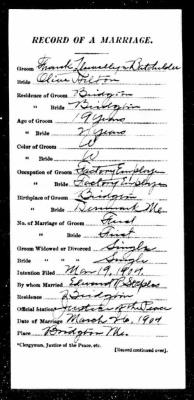 RECORD OF A MARRIAGE.
Groom Frank Llewellyn Batchelder
Bride Olive Hilton
Residence of Groom Bridgton
" Bride Bridgton
Age of Groom 19 Years
" Bride 21 Years
Color of Groom W
" Bride W
Occupation of Groom Factory Employee
" Bride Factory Employee
Birthplace of Groom Bridgton
" Bride Denmark Me.
No. of Marriage of Groom First
" Bride First
Groom Widowed or Divorced Single
Bride " " Single
Intention Filed Mar 19, 1904
By whom Married Edward P. Staples
Residence Bridgton
Official Station Justice of the Peace
Date of Marriage March 26, 1904
Place Bridgton Me.
*Clergyman, Justice of the Peace, etc. [Record continued over].